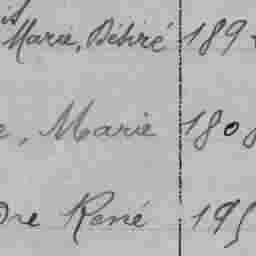 Marie, Désiré 189
e, Marie 180
dre René 195